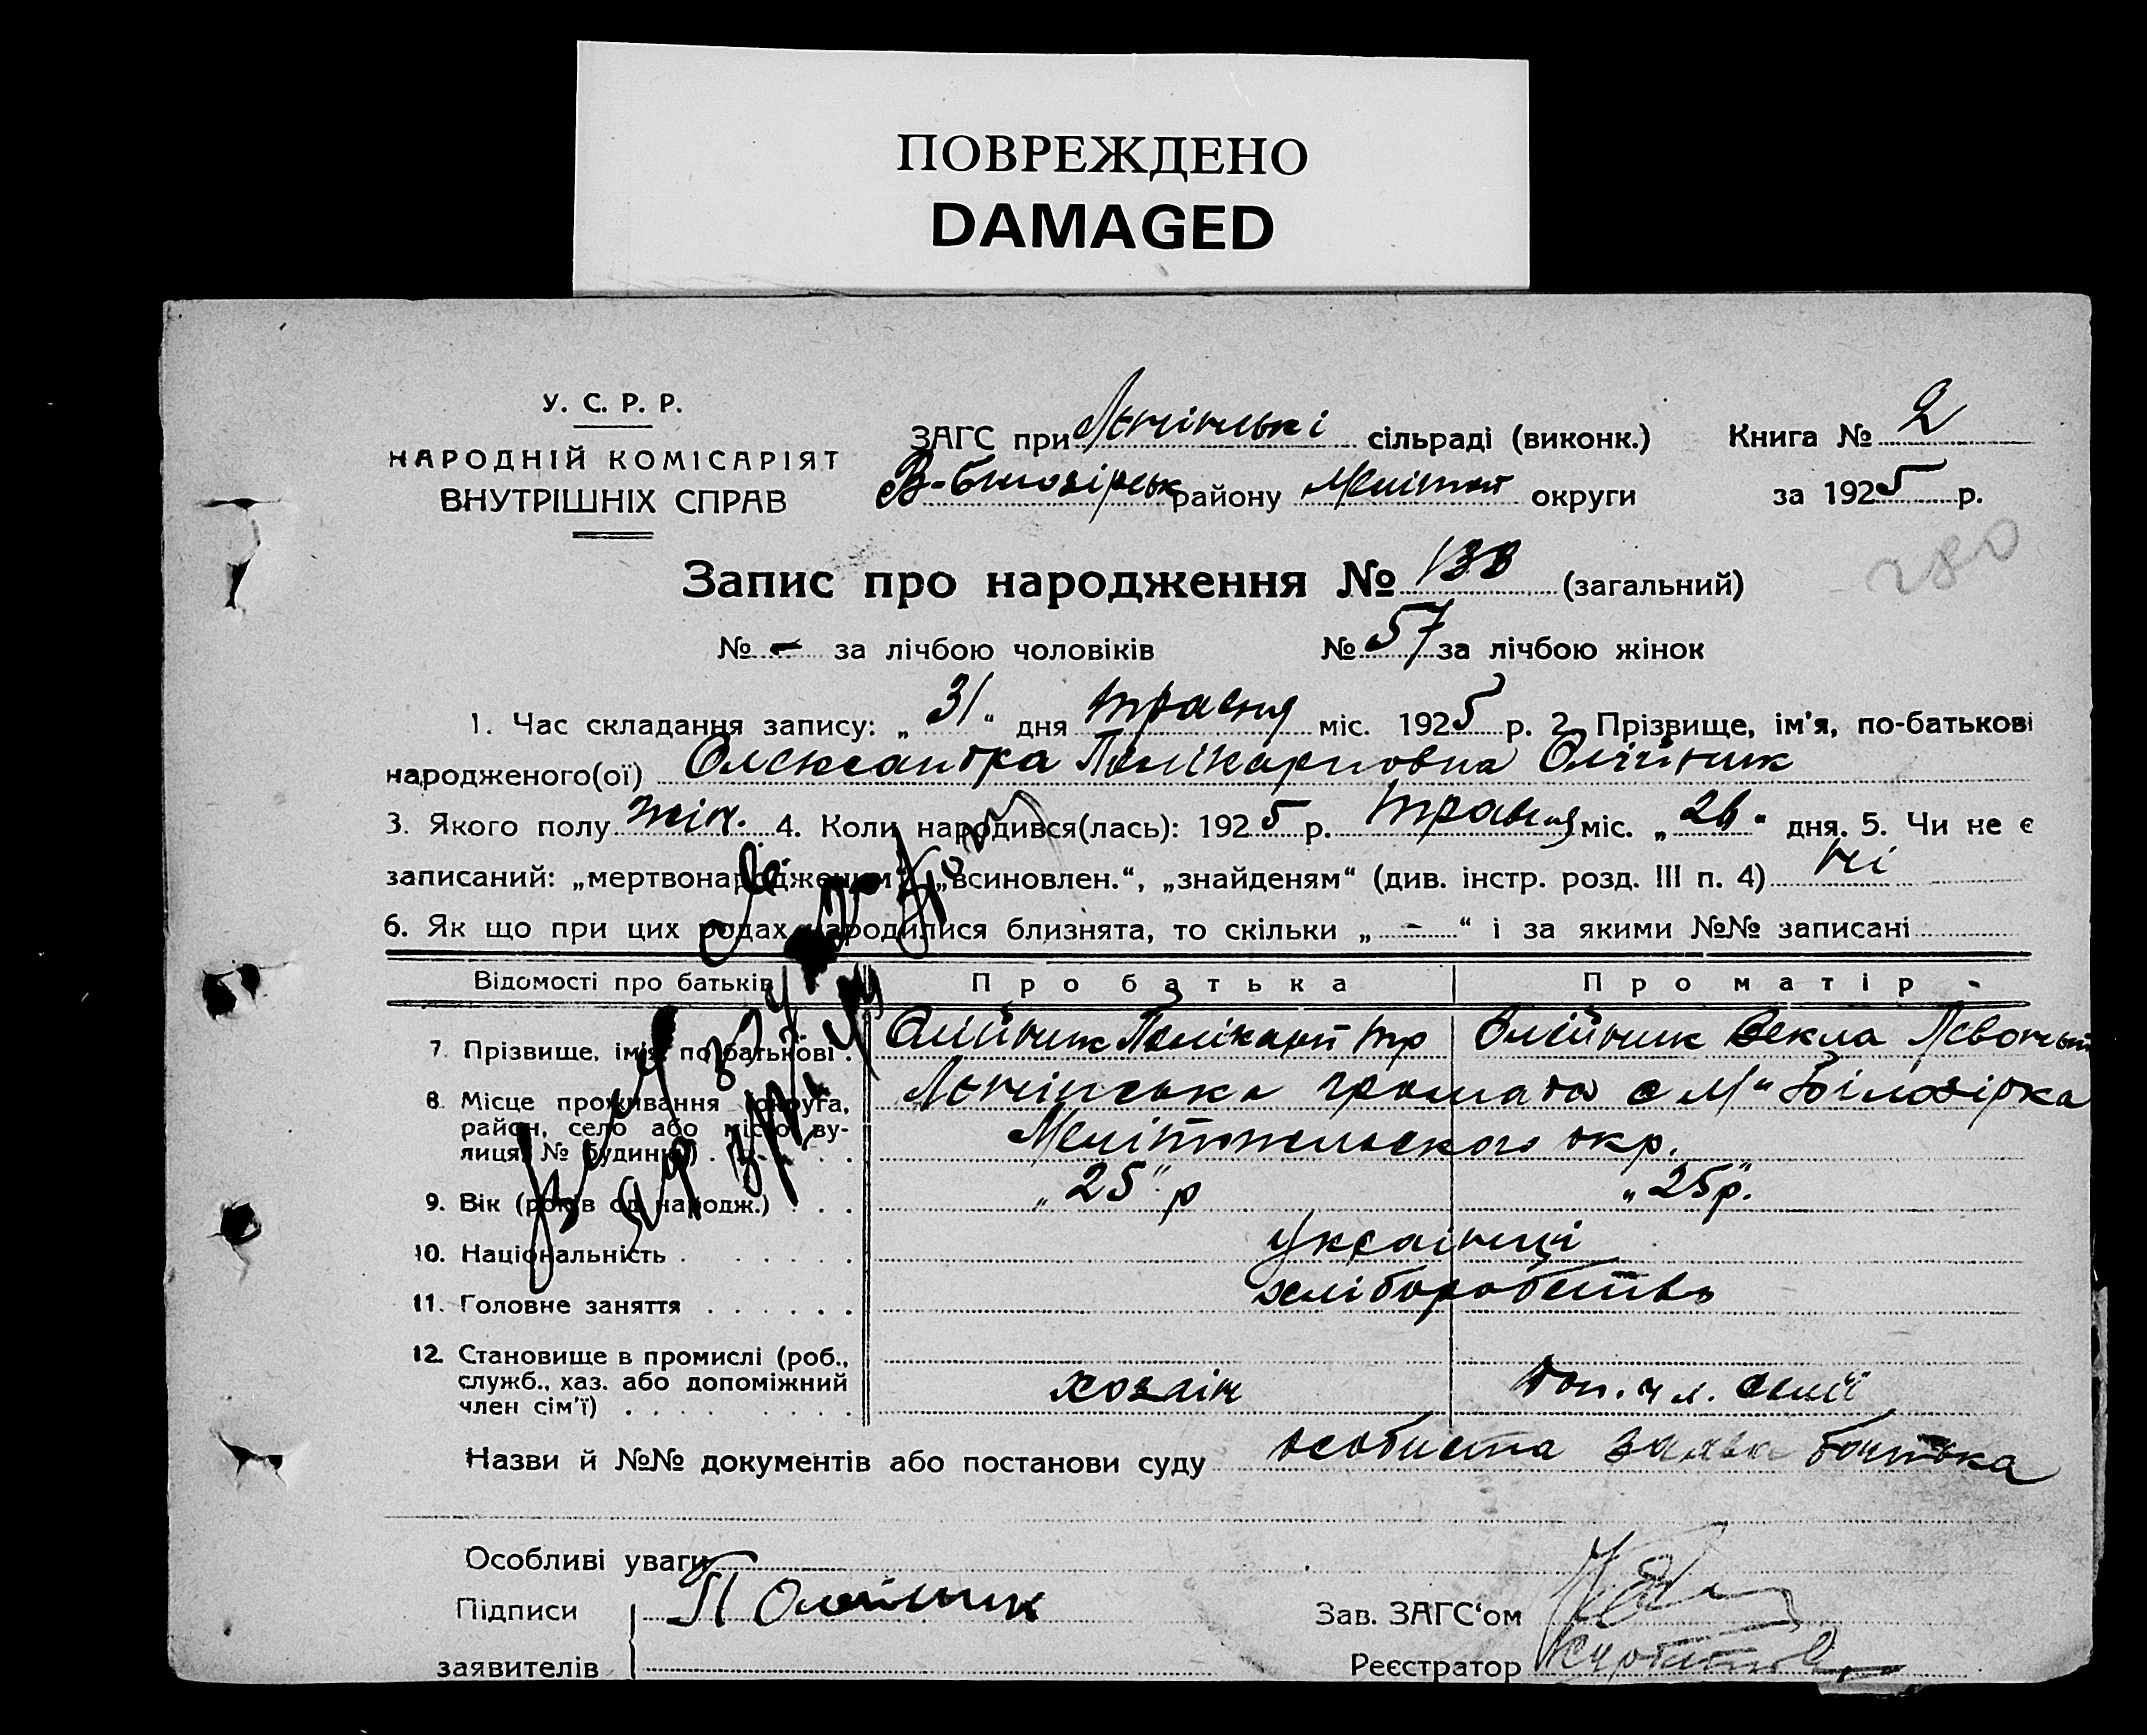 ПОВРЕЖДЕНО
DAMAGED
У. С. Р. Р.
НАРОДНІЙ КОМІСАРІЯТ
ВНУТРІШНІХ СПРАВ
ЗАГС при сільраді (виконк.)
Книга № 2
В-Білозірськ району Меліттоп округи
за 1925 р.
Запис про народження № 138 (загальний)
280
№ - за лічбою чоловіків № 57 за лічбою жінок
1. Час складання запису: „31“ дня травня міс. 1925 р. 2. Прізвище, ім'я, по-батькові
народженого(ої) Олександра Полікарповна Олійник
3. Якого полу жін. 4. Коли народився(лась): 1925 р. травня міс. „26“ дня. 5. Чи не є
записаний: „мертвонародженим“, „всиновлен.“, „знайденям“ (див. інстр. розд. III п. 4) ні
6. Як що при цих родах народилися близнята, то скільки „-“ і за якими №№ записані
Відомості про батьків Про батька Про матір
7. Прізвище, ім'я, по батькові . Олійник Полікарп Олійник Векла
8. Місце проживання (округа, громада с М Білозірка
район, село або місто ву-
лиця, № будинку) . . . . . Мелітопольского окр.
9. Вік (років од народж.) . . . „25“ р „25р.“
10. Національність . . . . . . . Українці
11. Головне заняття . . . . . . хліборобство
12. Становище в промислі (роб.,
служб., хаз. або допоміжний хозяін доп. чл. семії
член сім'ї) . . . . . . . . .
Назви й №№ документів або постанови суду особиста заява батька
Особливі уваги
Підписи П Олейник Зав. ЗАГС'ом
заявителів Реєстратор